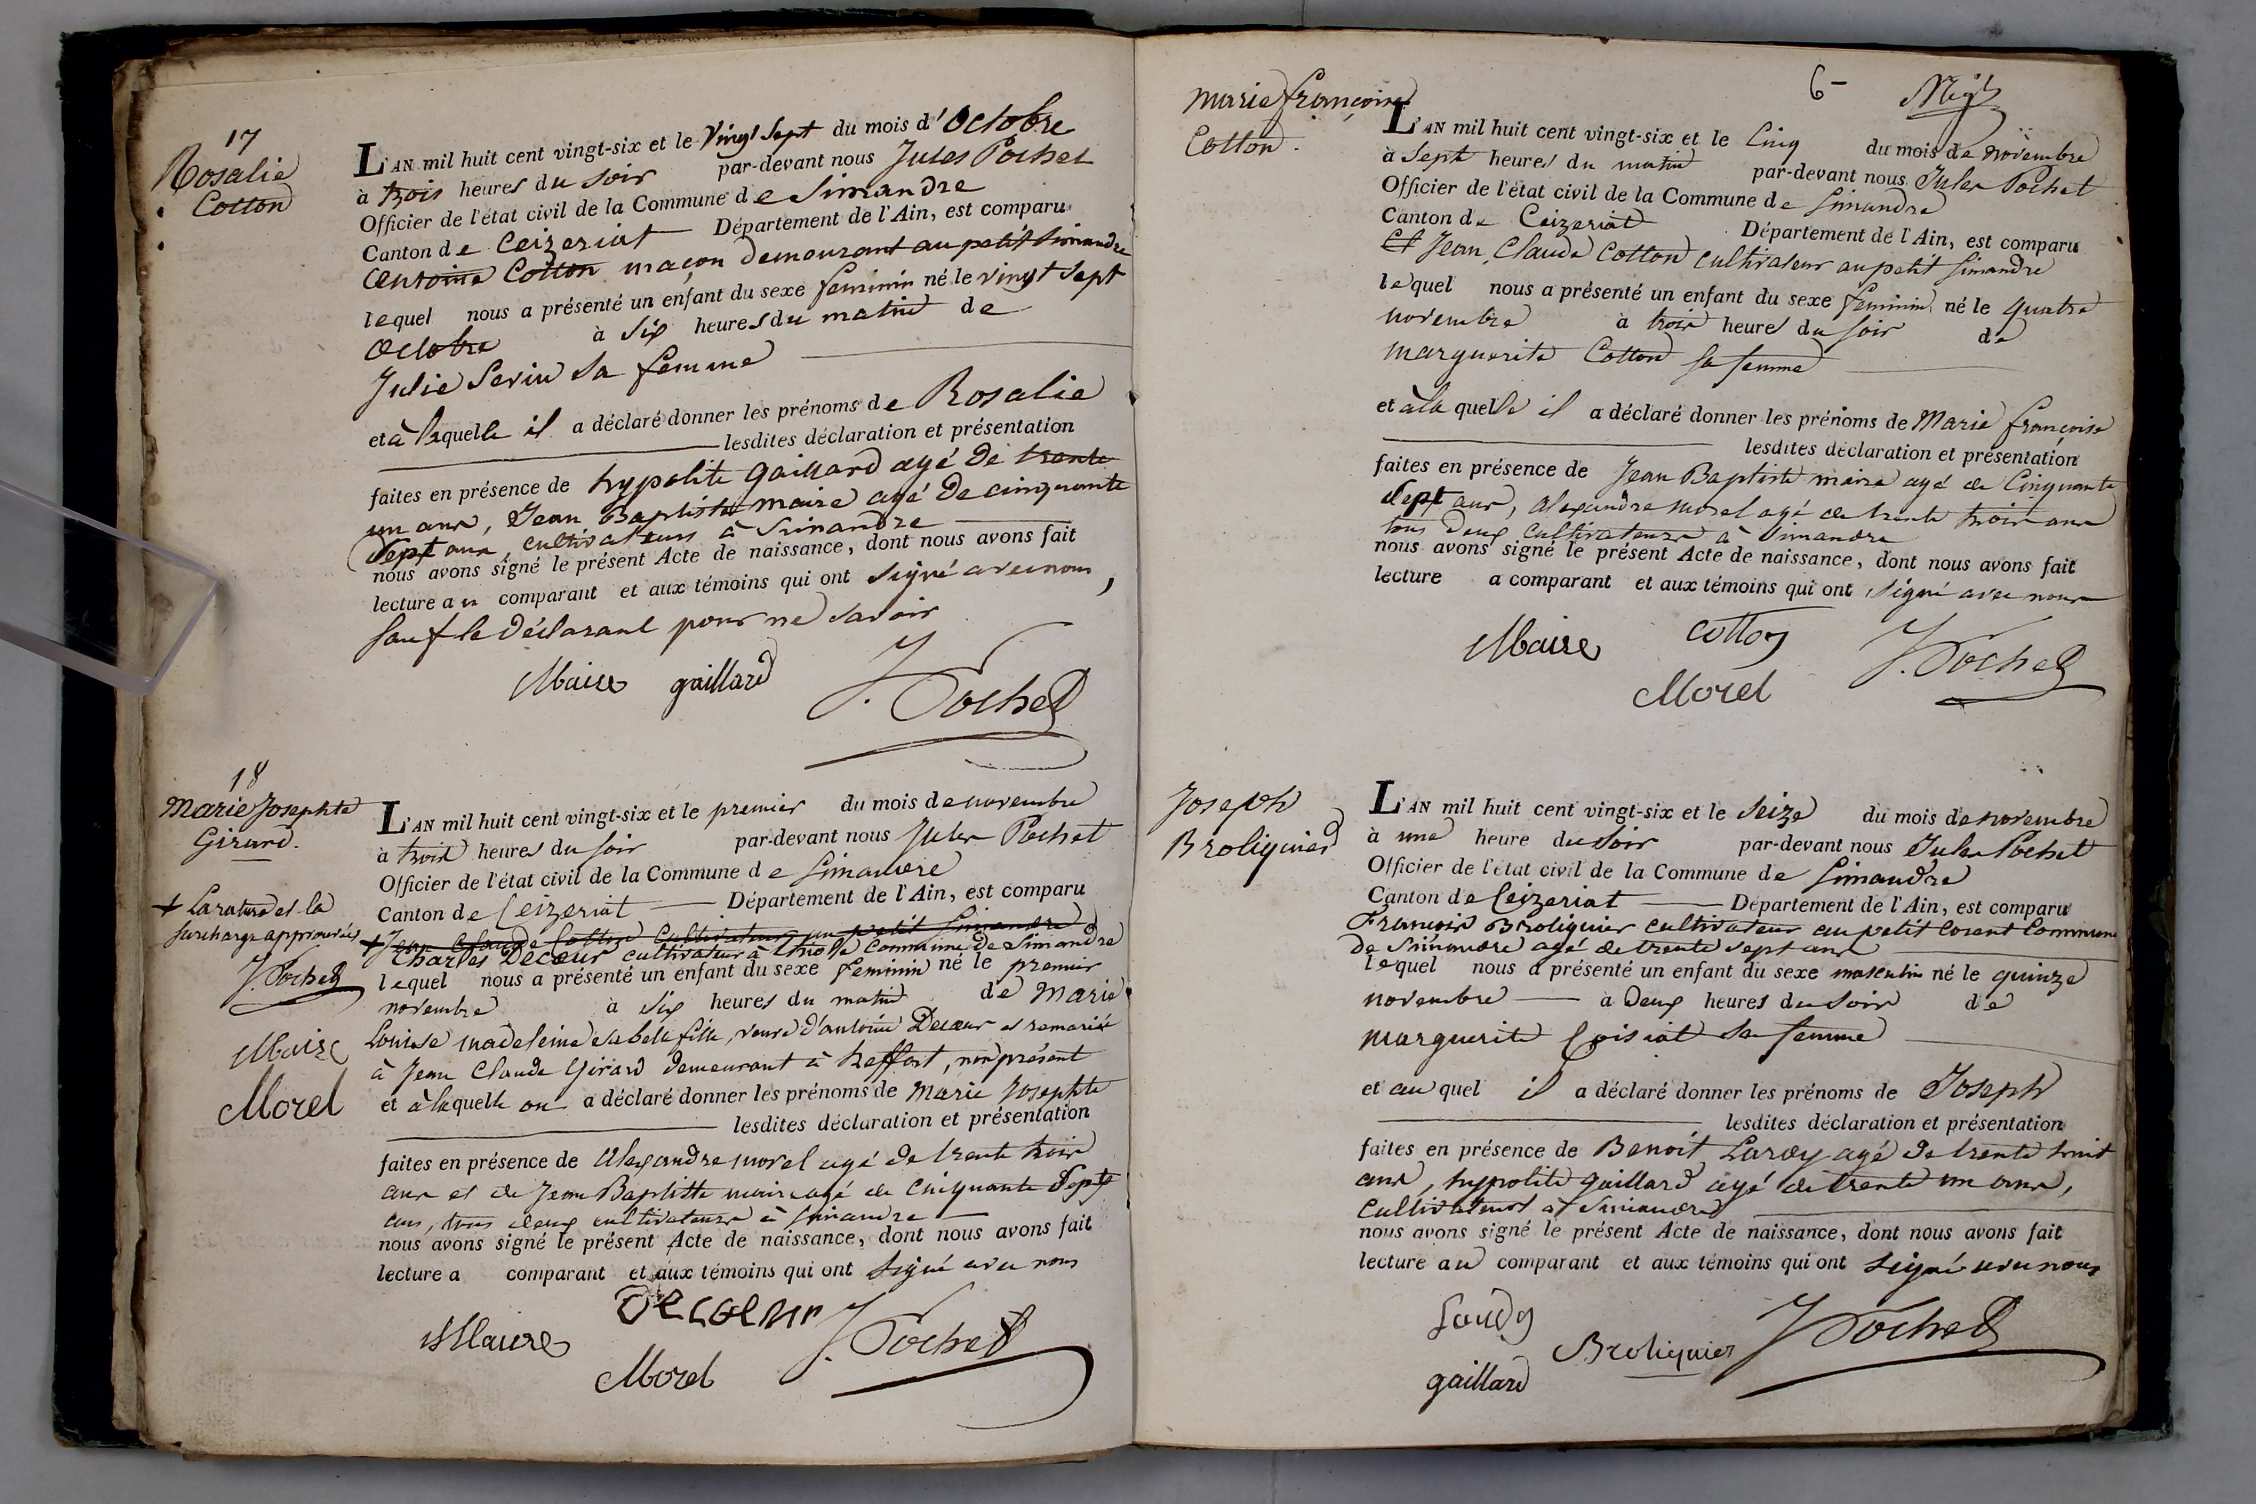 17
Rosalie
Cotton
L'AN mil huit cent vingt-six et le vingt sept du mois d'Octobre
à trois heures du soir par-devant nous Jules Pochet
Officier de l'état civil de la Commune de Simandre
Canton de Ceizeriat Département de l'Ain, est comparu
antoine Cotton maçon demeurant au petit Simandre
lequel nous a présenté un enfant du sexe feminin né le vingt sept
octobre à six heures du matin de
Julie Serin sa femme
et à laquelle il a déclaré donner les prénoms de Rosalie
lesdites déclaration et présentation
faites en présence de hypolite gaillard agé de trente
un ans, Jean Baptiste maire agé de cinquante
sept ans, cultivateurs à Simandre
nous avons signé le présent Acte de naissance, dont nous avons fait
lecture au comparant et aux témoins qui ont signé avec nous,
sauf le déclarant pour ne savoir
Maire gaillard J. Pochet
18
Marie Josephte
Girard.
+ La rature et la
surcharge approuvées
J. Pochet
Maire
Morel
L'AN mil huit cent vingt-six et le premier du mois de novembre
à trois heures du soir par-devant nous Jules Pochet
Officier de l'état civil de la Commune de Simandre
Canton de Ceizeriat Département de l'Ain, est comparu
+ Jean Claude Cotton Cultivateur au petit Simandre
Charles Decœur cultivateur à Commune de Simandre
lequel nous a présenté un enfant du sexe feminin né le premier
novembre à six heures du matin de Marie
Louise madeleine sa belle fille, veuve d'antoine Decœur et remariée
à Jean Claude Girard demeurant à treffort, non présent
et à laquelle on a déclaré donner les prénoms de Marie Josephte
lesdites déclaration et présentation
faites en présence de alexandre morel agé de trente trois
ans et de Jean Baptiste maire agé de cinquante sept
ans, tous deux cultivateurs à Simandre
nous avons signé le présent Acte de naissance, dont nous avons fait
lecture a comparant et aux témoins qui ont signé avec nous
Decoeur
Maire J. Pochet
Morel
6
marie françoise
Cotton.
L'AN mil huit cent vingt-six et le Cinq du mois de novembre
à sept heures du matin par-devant nous Jules Pochet
Officier de l'état civil de la Commune de Simandre
Canton de Ceizeriat Département de l'Ain, est comparu
Jean Claude Cotton cultivateur au petit Simandre
lequel nous a présenté un enfant du sexe feminin né le quatre
novembre à trois heures du soir de
marguerite Cotton sa femme
et à la quelle il a déclaré donner les prénoms de Marie françoise
lesdites déclaration et présentation
faites en présence de Jean Baptiste maire agé de Cinquante
Sept ans, alexandre morel agé de trente trois ans
tous deux cultivateurs à Simandre
nous avons signé le présent Acte de naissance, dont nous avons fait
lecture a comparant et aux témoins qui ont signé avec nous
Maire cotton J. Pochet
Morel
Joseph
Broliquier
L'AN mil huit cent vingt-six et le seize du mois de novembre
à une heure du soir par-devant nous Jules Pochet
Officier de l'état civil de la Commune de Simandre
Canton de Ceizeriat Département de l'Ain, est comparu
François Broliquier cultivateur au petit Corent Commune
de Simandre agé de trente sept ans
lequel nous a présenté un enfant du sexe masculin né le quinze
novembre à deux heures du soir de
marguerite Coisiat sa femme
et au quel il a déclaré donner les prénoms de Joseph
lesdites déclaration et présentation
faites en présence de Benoit agé de trente huit
ans, hypolite gaillard agé de trente un ans,
cultivateurs à Simandre
nous avons signé le présent Acte de naissance, dont nous avons fait
lecture au comparant et aux témoins qui ont signé avec nous
Broliquier J Pochet
gaillard